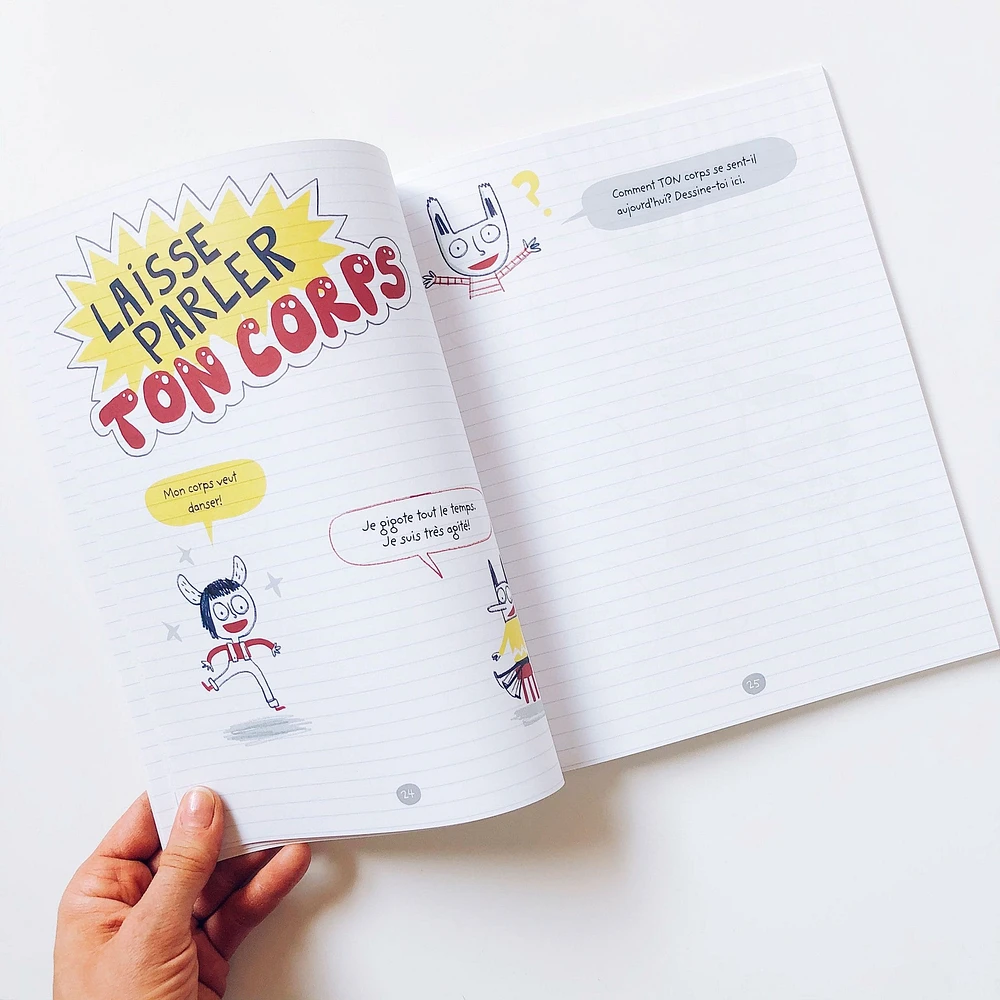 LAiSSE
PARLER
TON CORPS
Mon corps veut
danser!
Je gigote tout le temps.
Je suis très agité!
24
?
Comment TON corps se sent-il
aujourd'hui? Dessine-toi ici.
25